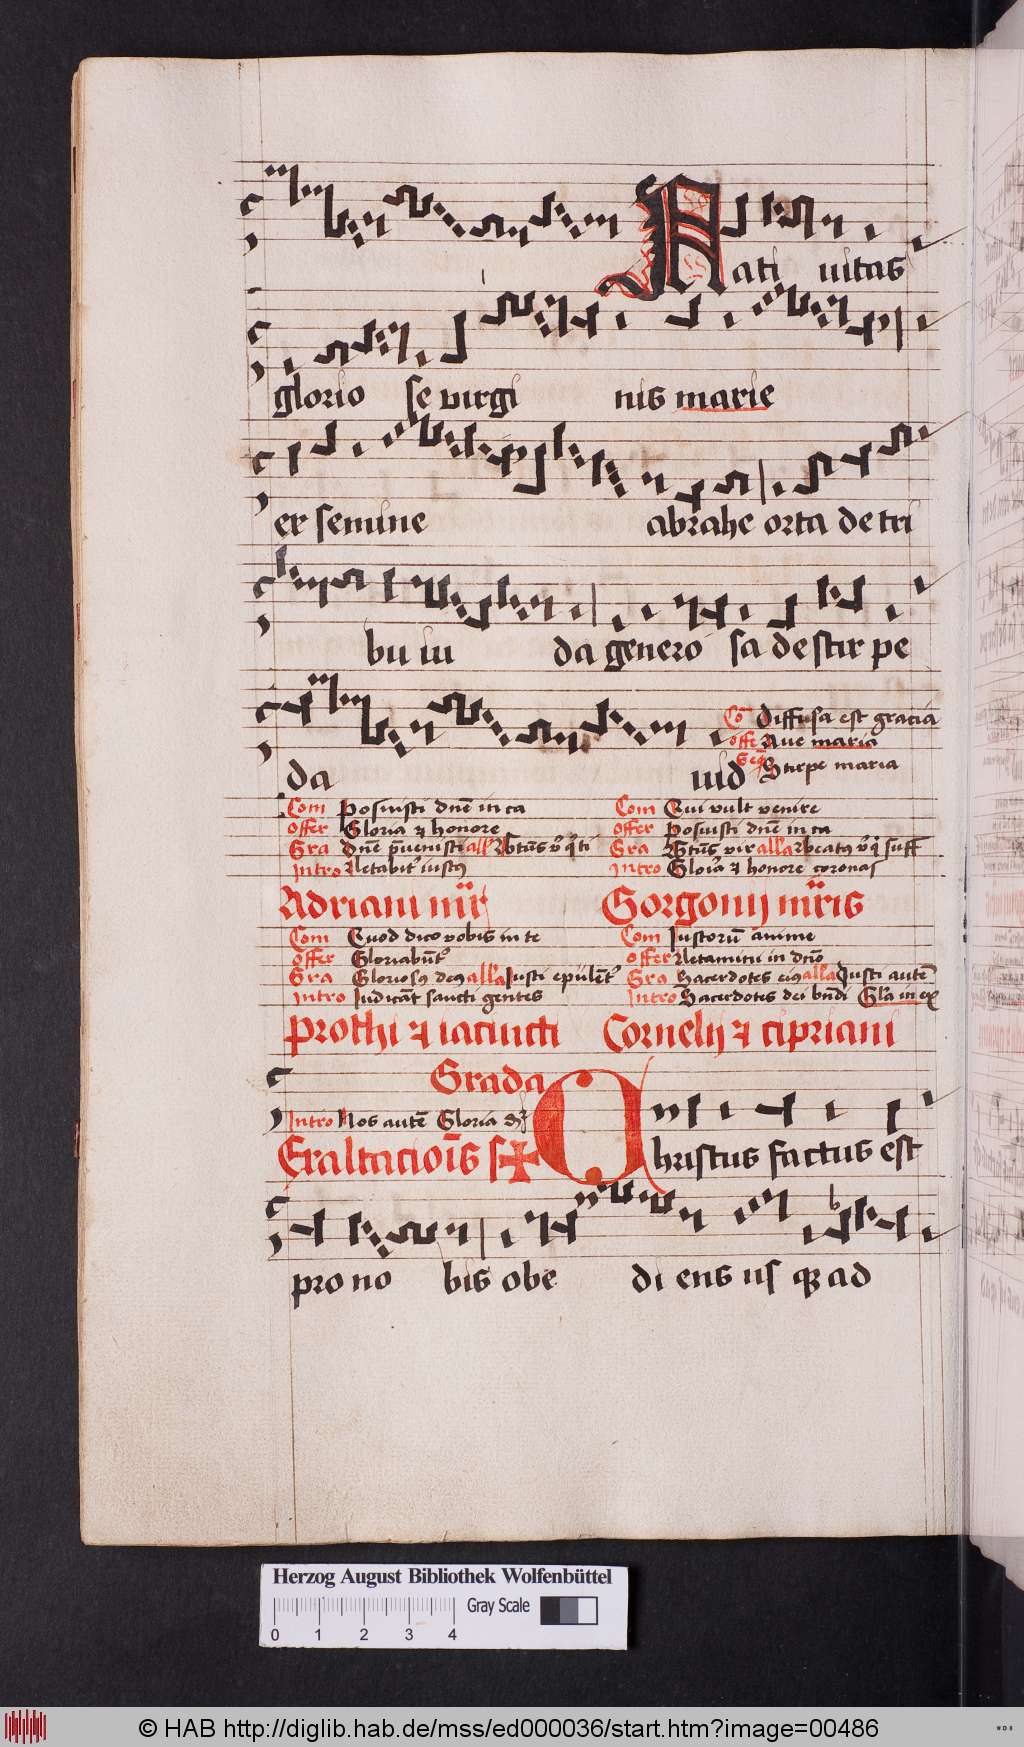 Nati uitas
glorio se virgi nis marie
ex semine abrahe orta de tri
bu iu da genero sa de stirpe
da uid
Cō Diffusa est gracia
offe Aue maria
Seq̄ Stirpe maria
Com Posuisti dn̄e in ca
offer Gloria ⁊ honore
Gra Dn̄e p̄uenisti all'a
Intro Letabit᷑ iustꝰ
Adriani mr̄
Com Qui vult venire
offer Posuisti dn̄e in ca
Gra Btūs vir all'a Beatꝰ
Intro Gloīa ⁊ honore coronas
Gorgonij mr̄is
Com Quod dico vobis in te
offer Gloriabūt᷑
Gra Gloriosꝰ deus all'a Justi epulēt᷑
Intro Judicāt sancti gentes
Prothi ⁊ iacincti
Com Justorū anime
offer Letamini in dn̄o
Gra Sacerdotes eiꝰ all'a Justi autē
Intro Sacerdotes dei bn̄di Gl'a in ex
Cornelij ⁊ cipriani
Grada
Intro Nos autē Gloria
Exaltaciōis s ✠
Christus factus est
pro no bis obe di ens us qꝫ ad
Herzog August Bibliothek Wolfenbüttel
Gray Scale
0 1 2 3 4
© HAB http://diglib.hab.de/mss/ed000036/start.htm?image=00486